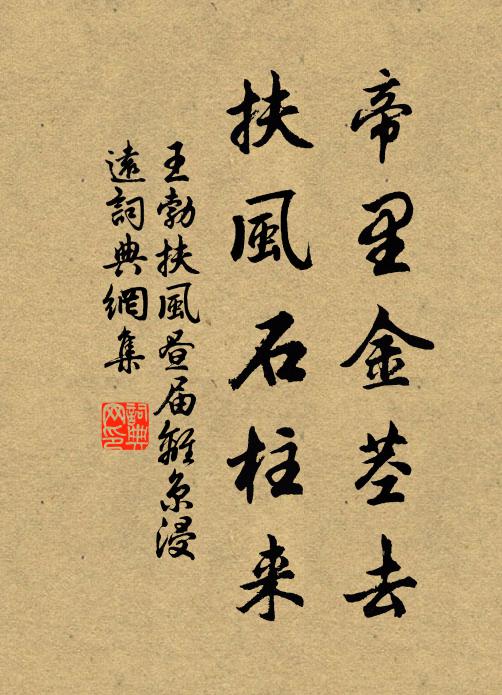 帝里金莖去
扶風石柱来
王勃扶風昼届離京浸
遠詞典網集
詞典
网印